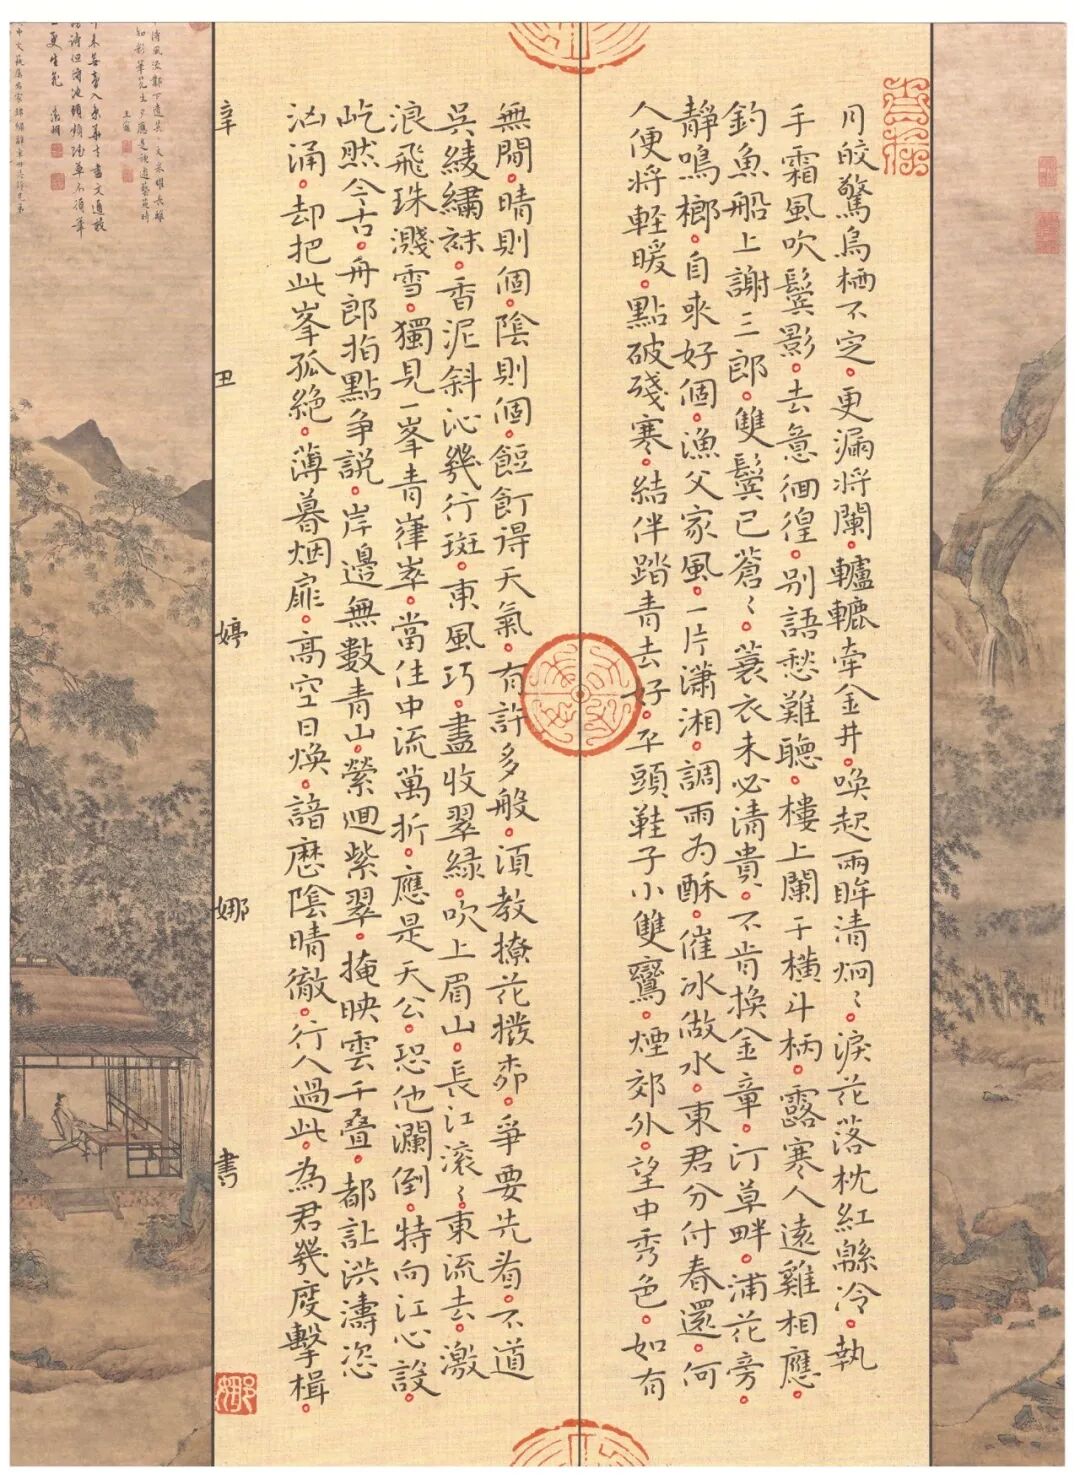 月皎驚烏栖不定。更漏將闌。轤轆牽金井。喚起兩眸清炯〻。淚花落枕紅緜冷。執
手霜風吹鬢影。去意徊徨。別語愁難聽。樓上闌干橫斗柄。露寒人遠雞相應。
釣魚船上謝三郎。雙鬢已蒼〻。蓑衣未必清貴。不肯換金章。汀草畔。浦花旁。
靜鳴榔。自來好個。漁父家風。一片瀟湘。調雨為酥。催冰做水。東君分付春還。何
人便將輕暖。點破殘寒。結伴踏青去好。平頭鞋子小雙鸞。煙郊外。望中秀色。如有
無間。晴則個。陰則個。餖飣得天氣。有許多般。須教撩花撥柳。爭要先看。不道
吳綾繡袜。香泥斜沁幾行斑。東風巧。盡收翠綠。吹上眉山。長江滾〻。東流去。激
浪飛珠濺雪。獨見一峯青嵂崒。當住中流萬折。應是天公。恐他瀾倒。特向江心設。
屹然今古。舟郎指點爭說。岸邊無數青山。縈迴紫翠。掩映雲千叠。都讓洪濤恣
汹涌。却把此峯孤絕。薄暮烟扉。高空日煥。諳歷陰晴徹。行人過此。為君幾度擊楫。
辛丑婷娜書